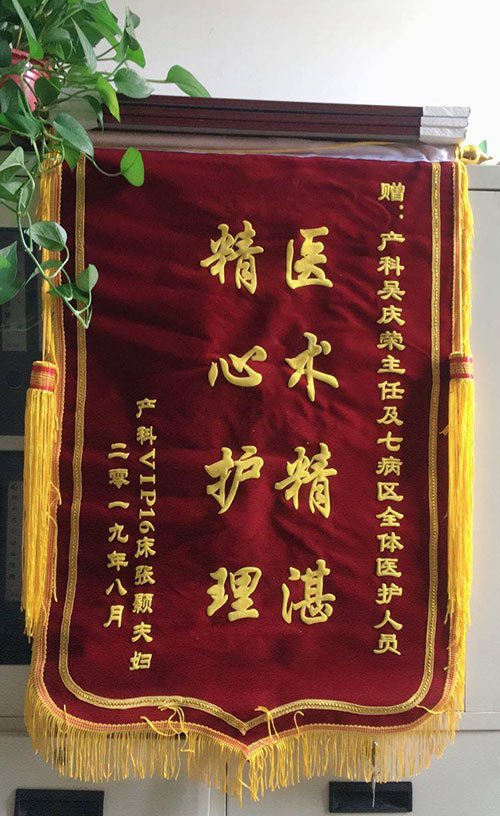 赠：产科吴庆荣主任及七病区全体医护人员
医术精湛
精心护理
产科VIP16床张颖夫妇
二零一九年八月